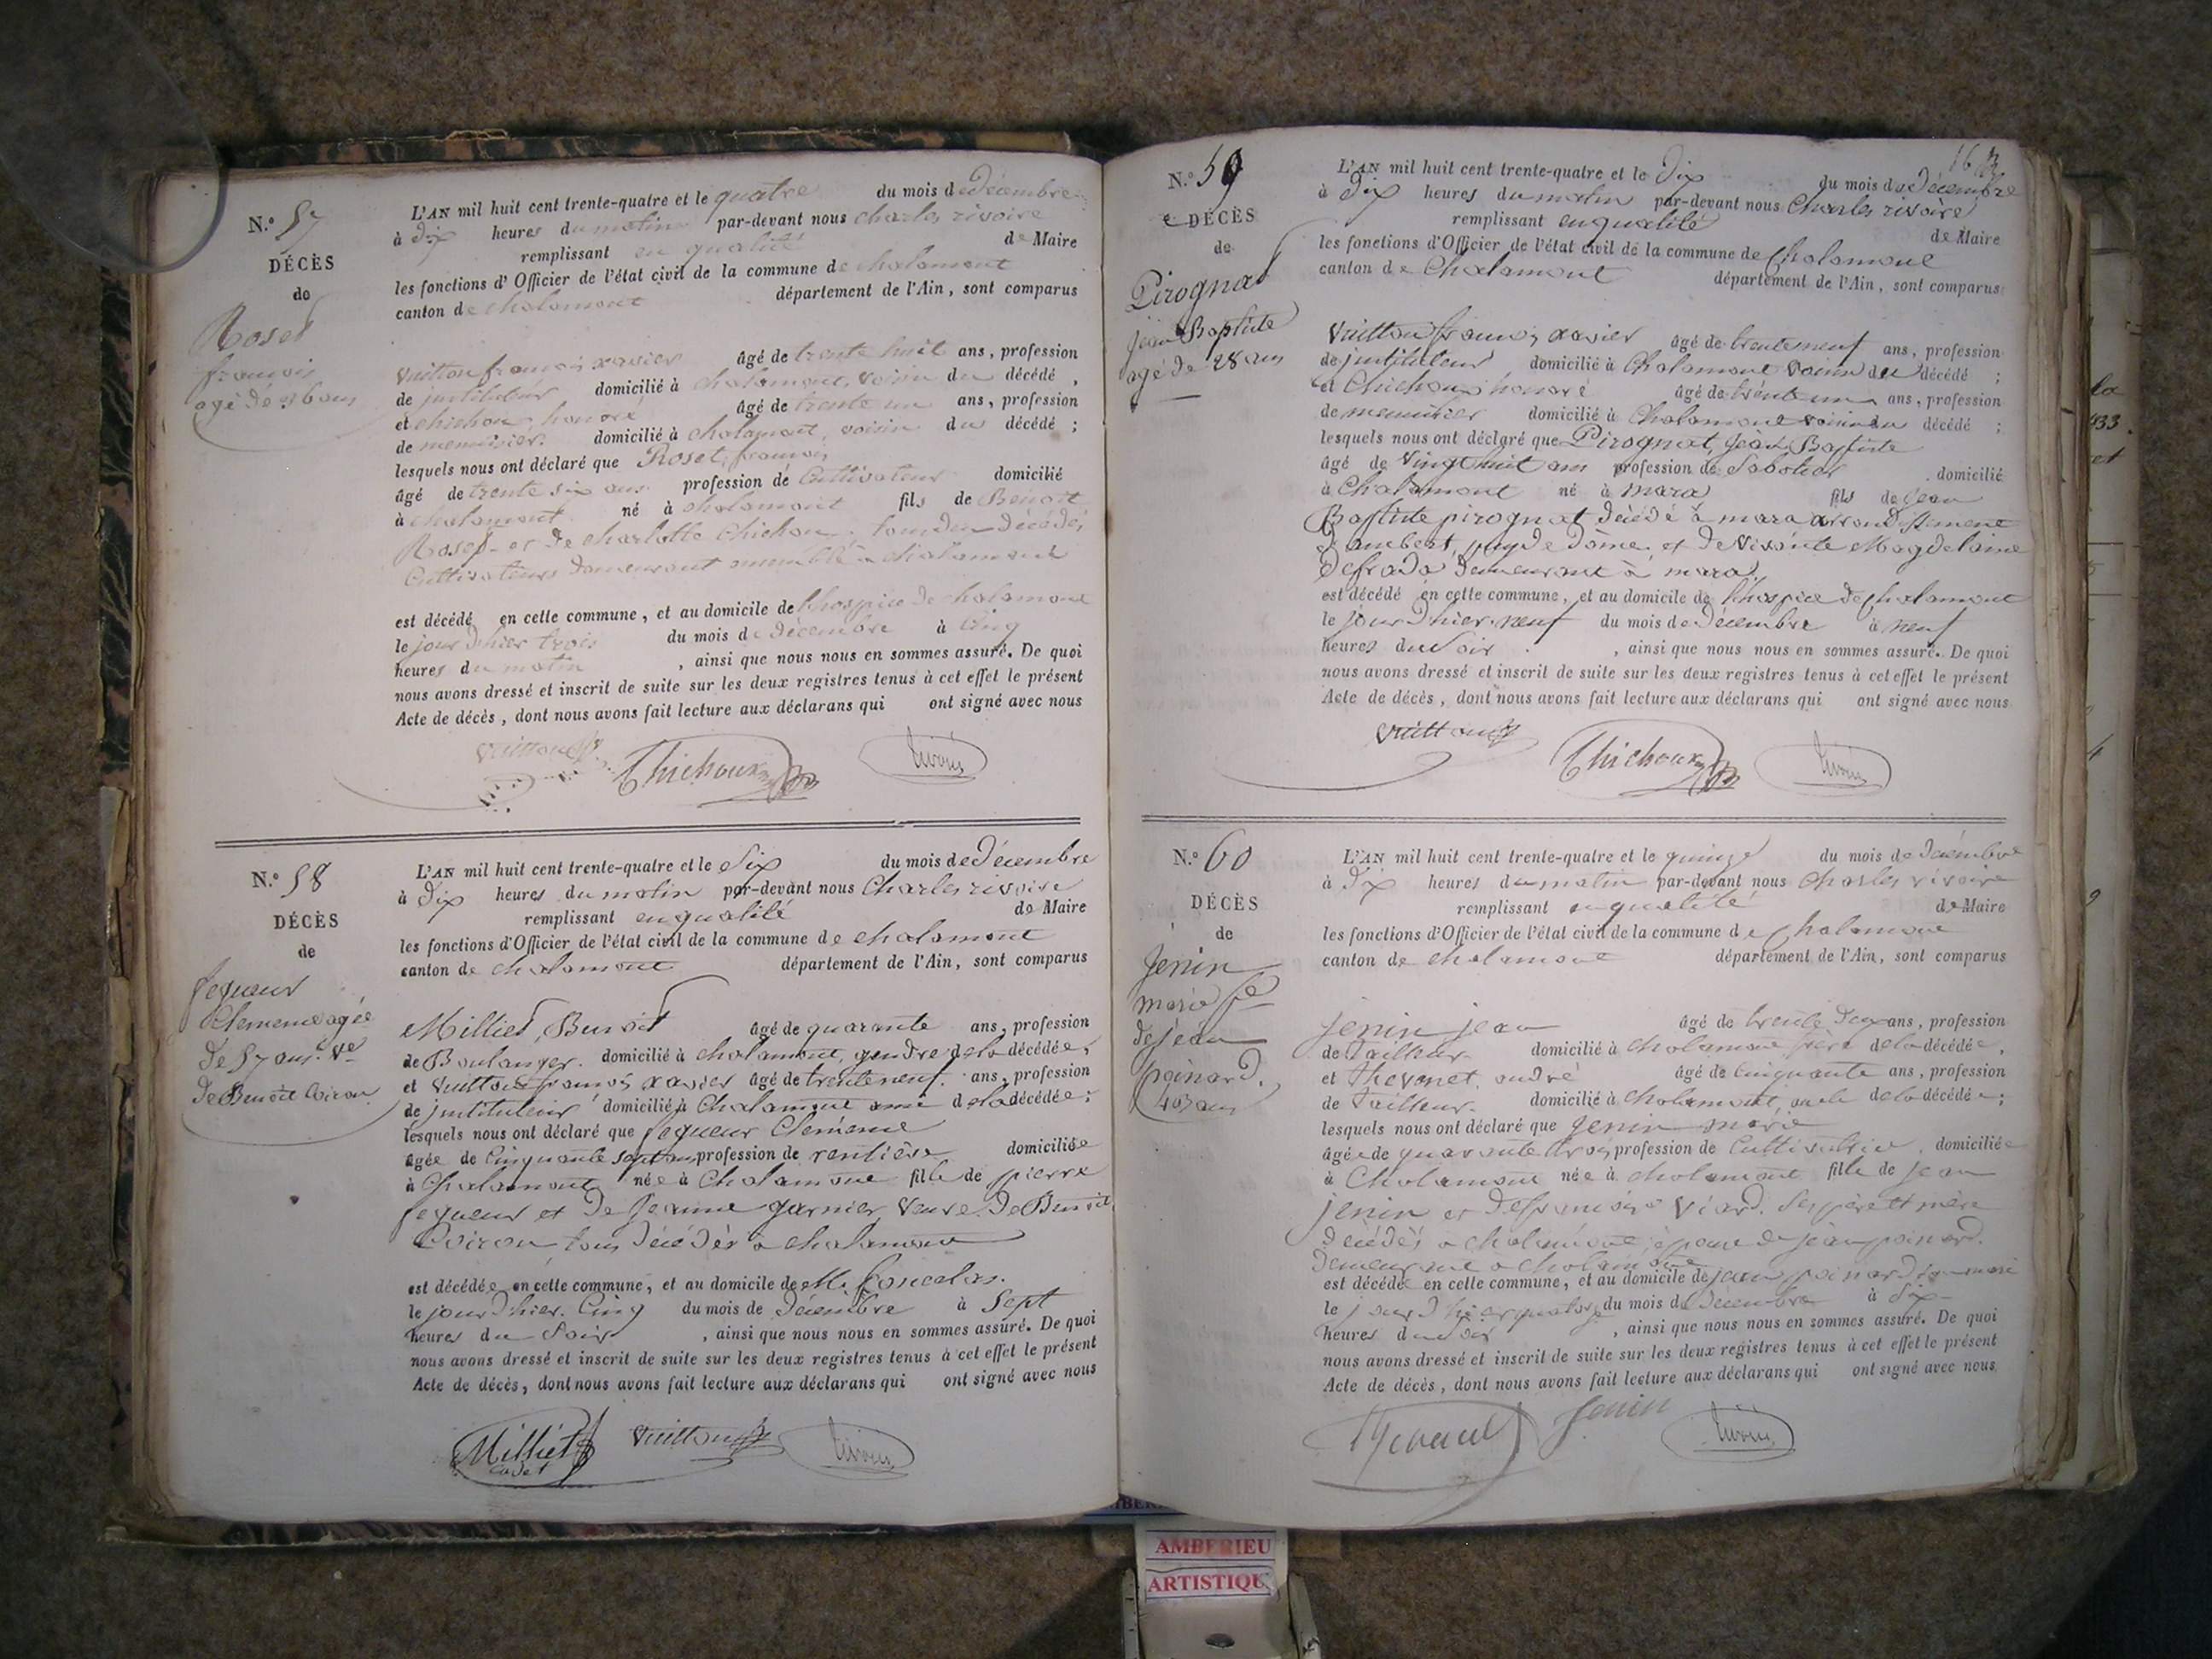 N.° 57
DÉCÈS
de
Roset
françois
agé de 36 ans
L'AN mil huit cent trente-quatre et le quatre du mois de Décembre
à dix heures du matin par-devant nous charles rivoire
remplissant en qualité de Maire
les fonctions d'Officier de l'état civil de la commune de chalamont
canton de chalamont département de l'Ain, sont comparus
Vuitton françois xavier âgé de trente huit ans, profession
de instituteur domicilié à chalamont, voisin du décédé,
et chichoux, honoré âgé de trente un ans, profession
de menuisier domicilié à chalamont, voisin du décédé ;
lesquels nous ont déclaré que Roset, françois
âgé de trente six ans profession de Cultivateur domicilié
à chalamont né à chalamont fils de Benoit
Roset et de charlotte Chichoux, tous deux décédés
Cultivateurs demeurant ensemble à chalamont
est décédé en cette commune, et au domicile de l'hospice de chalamont
le jour d'hier trois du mois de décembre à Cinq
heures du matin, ainsi que nous nous en sommes assuré. De quoi
nous avons dressé et inscrit de suite sur les deux registres tenus à cet effet le présent
Acte de décès, dont nous avons fait lecture aux déclarans qui ont signé avec nous
Vuitton Chichoux rivoire
N.° 58
DÉCÈS
de
Clemence agée
de 57 ans. Ve
de Benoît Coiron
L'AN mil huit cent trente-quatre et le Six du mois de Décembre
à Dix heures du matin par-devant nous Charles rivoire
remplissant en qualité de Maire
les fonctions d'Officier de l'état civil de la commune de chalamont
canton de chalamont département de l'Ain, sont comparus
Milliet, Benoit âgé de quarante ans, profession
de Boulanger. domicilié à chalamont, gendre de la décédée,
et Vuitton françois xavier âgé de trente neuf. ans, profession
de instituteur domicilié à Chalamont ami de la décédée ;
lesquels nous ont déclaré que Clemence
âgée de Cinquante sept ans profession de rentière domiciliée
à Chalamont née à Chalamont fille de pierre
et de Jeanne garnier, Veuve de Benoit
Coiron tous décédés à chalamont
est décédée en cette commune, et au domicile de M.
le jour d'hier. Cinq du mois de Décembre à Sept
heures du Soir, ainsi que nous nous en sommes assuré. De quoi
nous avons dressé et inscrit de suite sur les deux registres tenus à cet effet le présent
Acte de décès, dont nous avons fait lecture aux déclarans qui ont signé avec nous
Milliet Vuitton rivoire
cadet
N.° 59
DÉCÈS
de
Pirognat
jean Baptiste
agé de 28 ans
L'AN mil huit cent trente-quatre et le Dix du mois de Décembre
à Dix heures du matin par-devant nous Charles rivoire
remplissant en qualité de Maire
les fonctions d'Officier de l'état civil de la commune de Chalamont
canton de Chalamont département de l'Ain, sont comparus
Vuitton françois xavier âgé de trente neuf ans, profession
de instituteur domicilié à Chalamont voisin du décédé ;
et Chichoux honoré âgé de trente un ans, profession
de menuisier domicilié à Chalamont voisin du décédé ;
lesquels nous ont déclaré que Pirognat, Jean Baptiste
âgé de Vingt huit ans profession de Saboteur domicilié
à Chalamont né à mara fils de Jean
Baptiste pirognat décédé à mara arrondissement
d'ambert, puy de Dôme, et de vivante Magdelaine
Defrada demeurant à mara.
est décédé en cette commune, et au domicile de l'hospice de Chalamont
le jour d'hier neuf du mois de Décembre à neuf
heures du Soir, ainsi que nous nous en sommes assuré. De quoi
nous avons dressé et inscrit de suite sur les deux registres tenus à cet effet le présent
Acte de décès, dont nous avons fait lecture aux déclarans qui ont signé avec nous
Vuitton Chichoux rivoire
N.° 60
DÉCÈS
de
Jenin
marie fe
de jean
poinard.
43 ans
L'AN mil huit cent trente-quatre et le quinze du mois de Décembre
à Dix heures du matin par-devant nous Charles rivoire
remplissant en qualité de Maire
les fonctions d'Officier de l'état civil de la commune de Chalamont
canton de chalamont département de l'Ain, sont comparus
Jenin jean âgé de trente deux ans, profession
de Tailleur domicilié à Chalamont frère de la décédée,
et Thevenet, andré âgé de Cinquante ans, profession
de Tailleur. domicilié à Chalamont, oncle de la décédée ;
lesquels nous ont déclaré que Jenin marie
âgée de quarante trois profession de Cultivatrice domiciliée
à Chalamont née à chalamont fille de jean
Jenin et de françoise Viard. ses père et mère
décédés à chalamont, épouse de jean poinard.
demeurant à chalamont
est décédée en cette commune, et au domicile de jean poinard son mari
le jour d'hier quatorze du mois de Décembre à Six
heures du Soir, ainsi que nous nous en sommes assuré. De quoi
nous avons dressé et inscrit de suite sur les deux registres tenus à cet effet le présent
Acte de décès, dont nous avons fait lecture aux déclarans qui ont signé avec nous
Jenin rivoire
AMBERIEU
ARTISTIQU